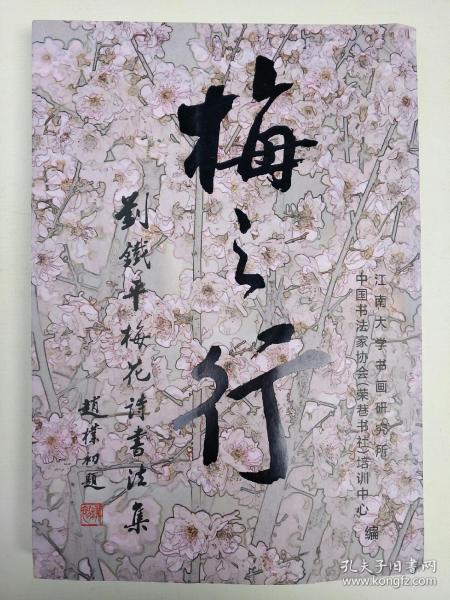 梅之行
劉鐵平梅花诗書法集
趙樸初題
江南大学书画研究所
中国书法家协会(荣巷书社)培训中心
编
孔夫子旧书网
https://www.kongfz.com